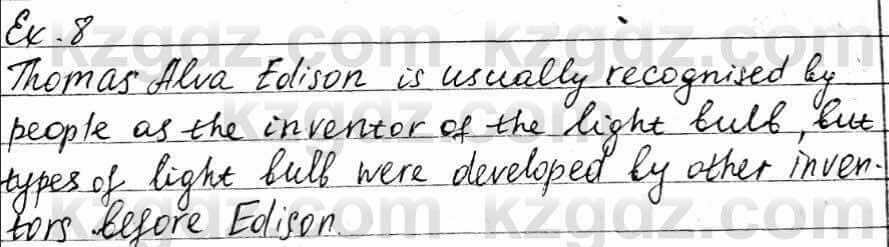 Ex. 8
Thomas Alva Edison is usually recognised by
people as the inventor of the light bulb, but
types of light bulb were developed by other inven-
tors before Edison.
kzgdz.com